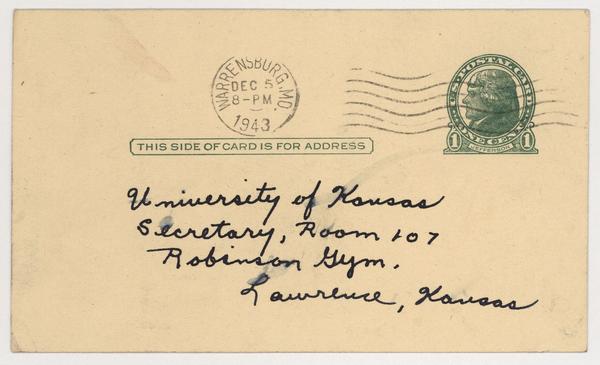 WARRENSBURG, MO.
DEC 5
8-PM
1943
U.S. POSTAL CARD
ONE CENT
1 JEFFERSON 1
THIS SIDE OF CARD IS FOR ADDRESS
University of Kansas
Secretary, Room 107
Robinson Gym.
Lawrence, Kansas